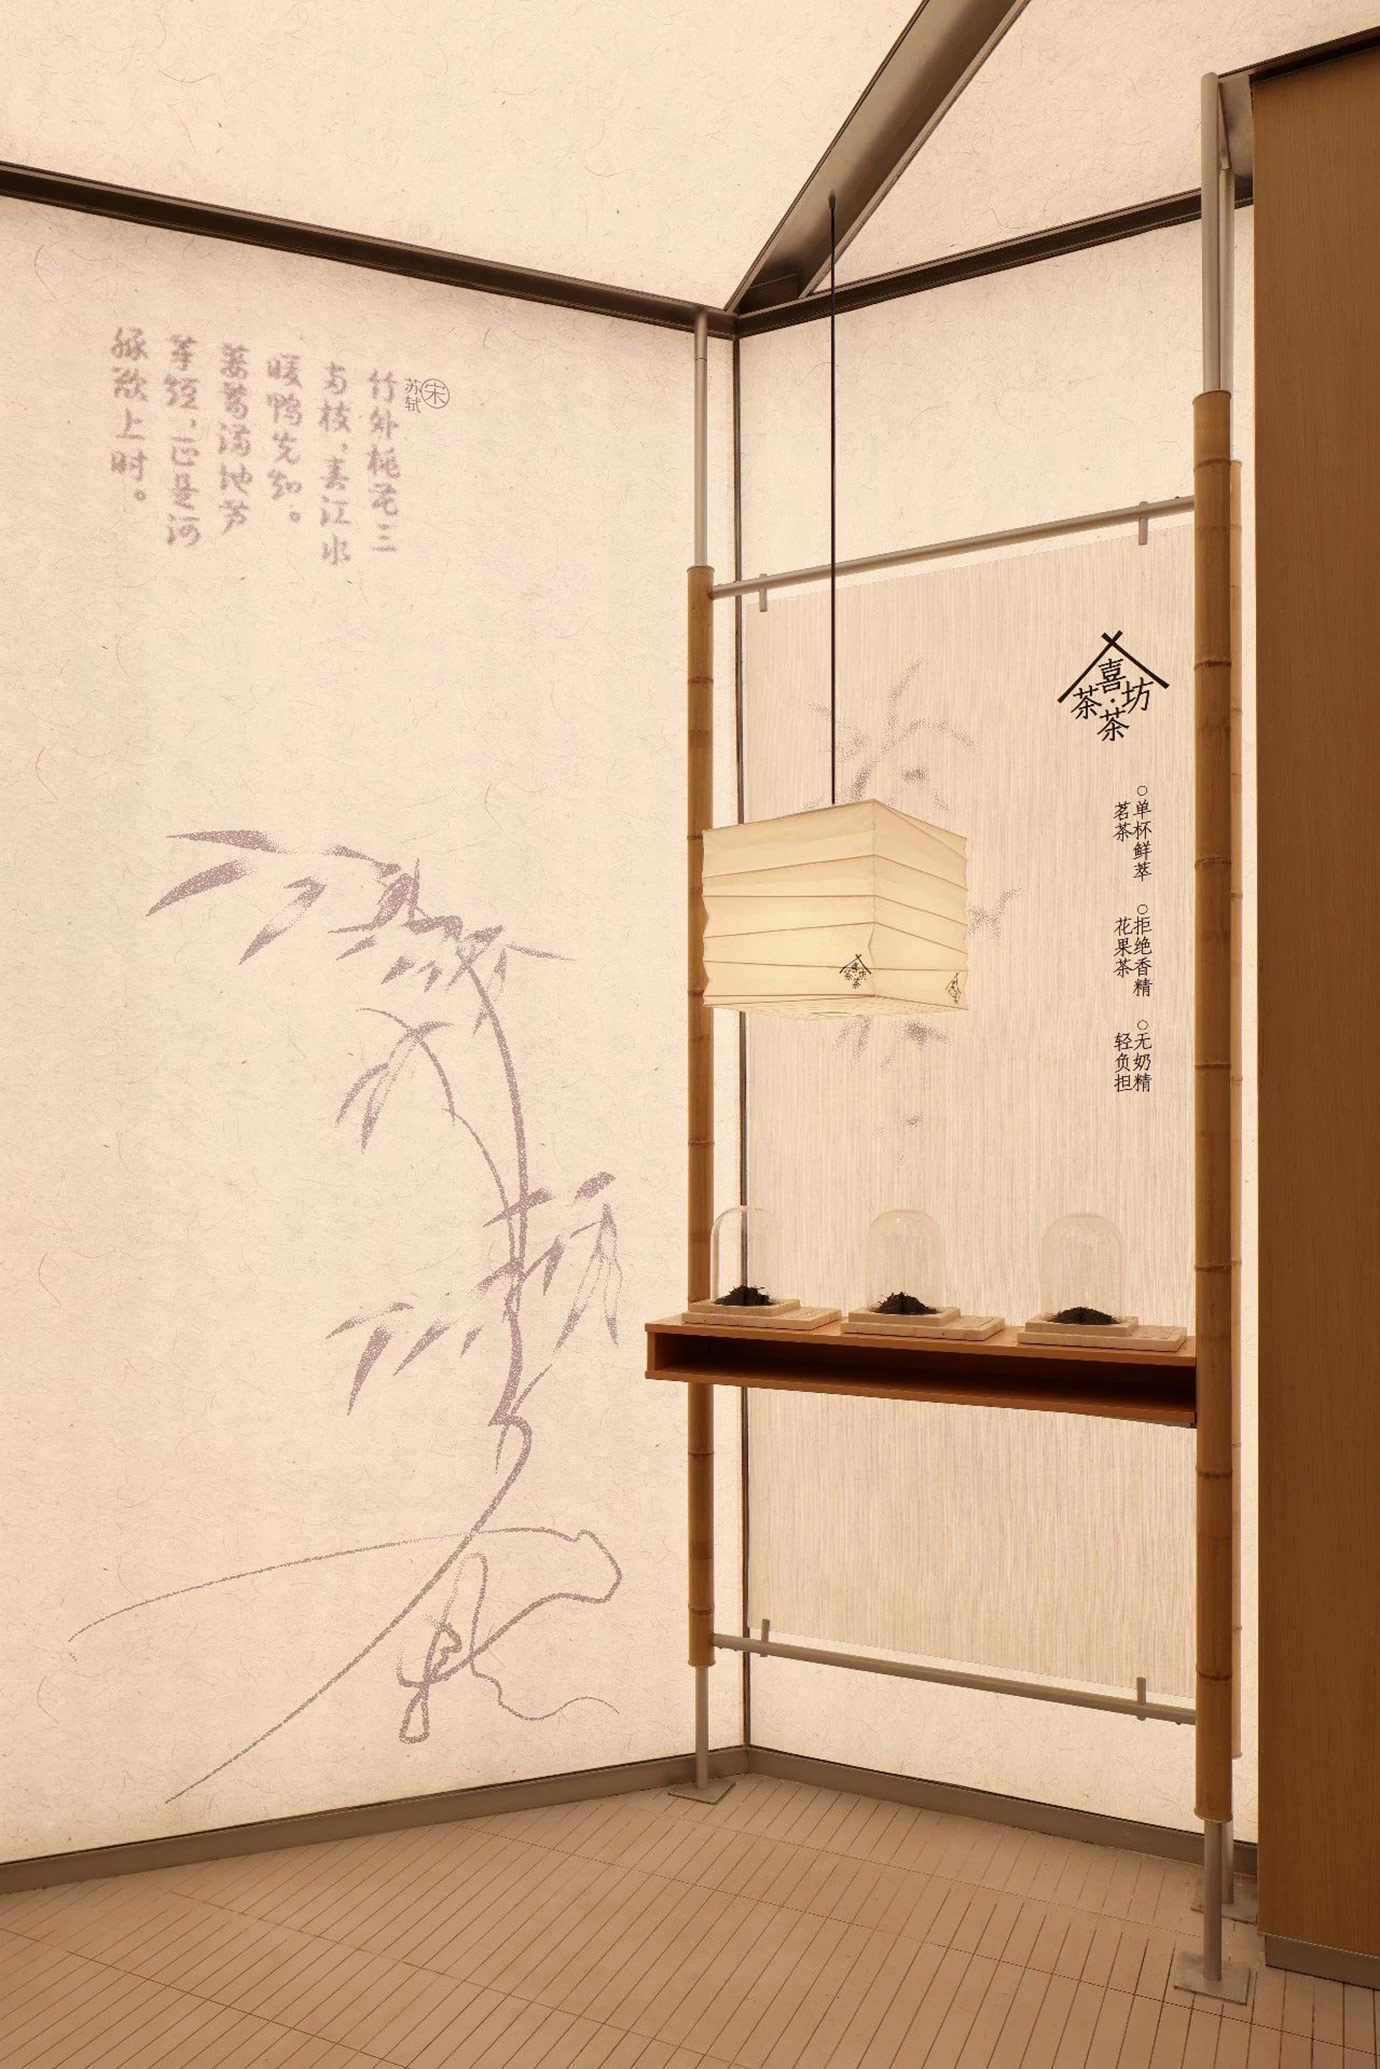 宋
苏轼
竹外桃花三
两枝，春江水
暖鸭先知。
蒌蒿满地芦
芽短，正是河
豚欲上时。
喜茶·茶坊
○单杯鲜萃
茗茶
○拒绝香精
花果茶
○无奶精
轻负担